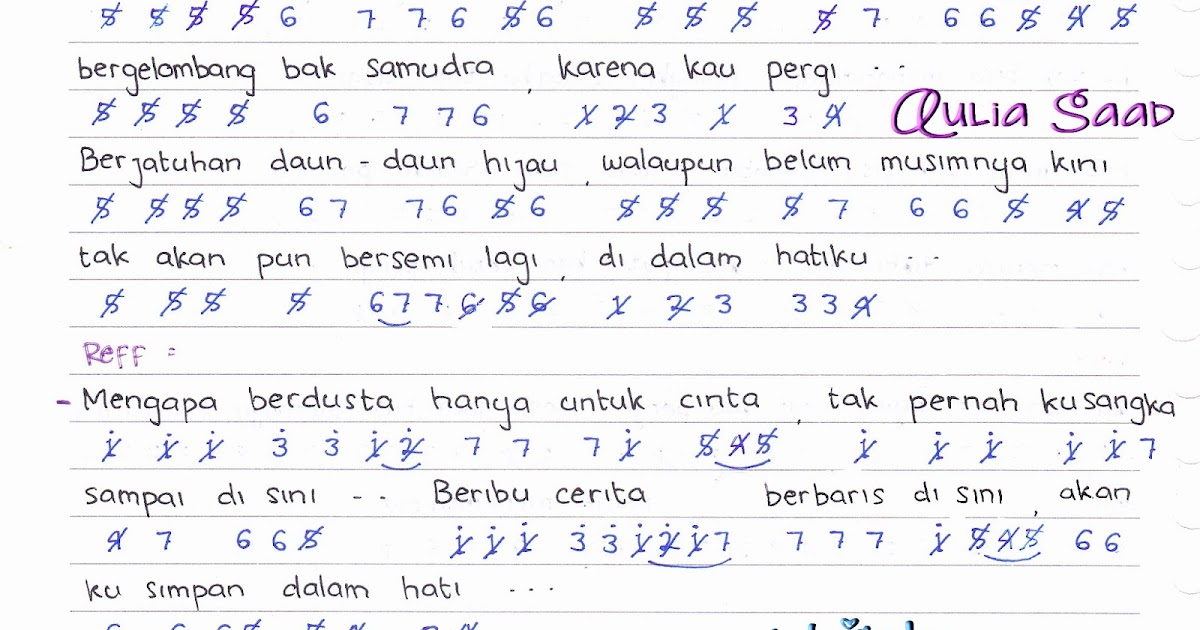 5̸ 5̸ 5̸ 5̸ 6 7 7 6 5̸ 6 5̸ 5̸ 5̸ 5̸ 7 6 6 5̸ 4̸ 5̸
bergelombang bak samudra , karena kau pergi . . .
5̸ 5̸ 5̸ 5̸ 6 7 7 6 1̸ 2̸ 3 1̸ 3 4̸ Qulia Saad
Berjatuhan daun - daun hijau , walaupun belum musimnya kini
5̸ 5̸ 5̸ 5̸ 6 7 7 6 5̸ 6 5̸ 5̸ 5̸ 5̸ 7 6 6 5̸ 4̸ 5̸
tak akan pun bersemi lagi , di dalam hatiku . . .
5̸ 5̸ 5̸ 5̸ 6 7 7 6̸ 5̸ 6̸ 1̸ 2̸ 3 3 3 4̸
Reff =
- Mengapa berdusta hanya untuk cinta , tak pernah kusangka
1̸̇ 1̸̇ 1̸̇ 3̇ 3̇ 1̸̇ 2̸̇ 7 7 7 1̸̇ 5̸ 4̸ 5̸ 1̸̇ 1̸̇ 1̸̇ 1̸̇ 1̸̇ 7
sampai di sini - - Beribu cerita berbaris di sini , akan
4̸ 7 6 6 5̸ 1̸̇ 1̸̇ 1̸̇ 3̇ 3̇ 1̸̇ 2̸̇ 1̸̇ 7 7 7 7 1̸̇ 5̸ 4̸ 5̸ 6 6
ku simpan dalam hati . . .